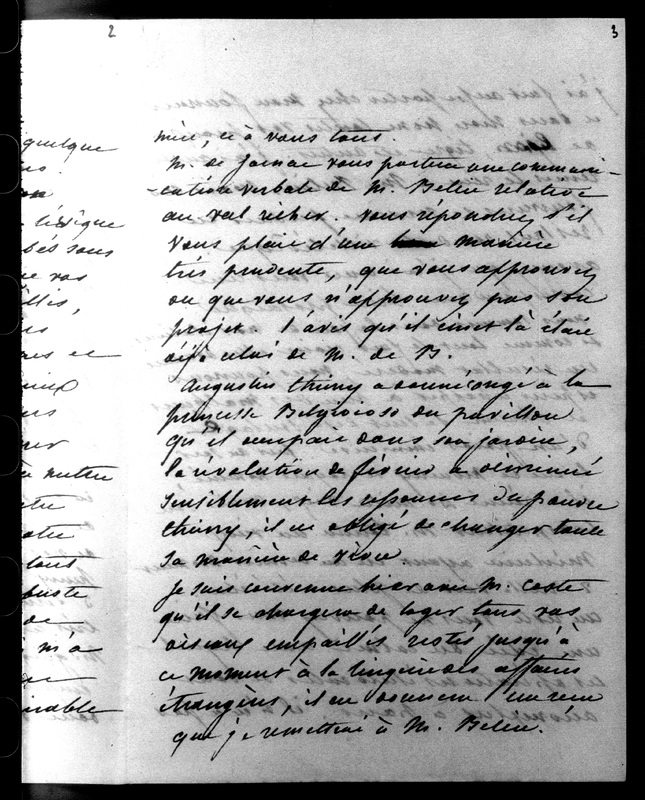 2
3
quelque
lessique
bés sous
ne vos
illis,
es et
notre
tout
buste
de
m'a
mirable
mère, et à vous tous.
M. de Jarnac vous portera une communi-
-cation verbale de M. Belin relative
au val richer. vous répondrez s'il
vous plait d'une manière
très prudente, que vous approuvez
ou que vous n'approuvez pas son
projet. l'avis qu'il émet là était
déjà celui de M. de B.
Augustin thierry a donné congé à la
princesse Belgiojoso du pavillon
qu'il occupait dans son jardin,
la révolution de février a diminué
sensiblement les ressources du pauvre
thierry, il est obligé de changer toute
sa manière de vivre.
Je suis convenue hier avec M. Coste
qu'il se chargera de loger tous vos
oiseaux empaillés restés jusqu'à
ce moment à la lingerie des affaires
étrangères, il en donnera un reçu
que je remettrai à M. Belin.